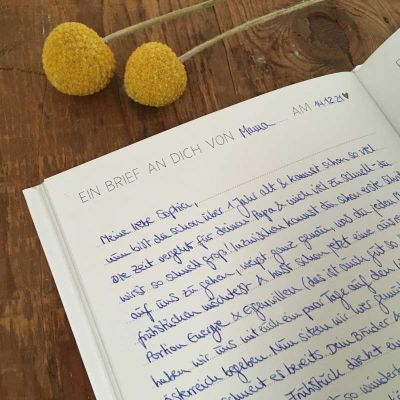 EIN BRIEF AN DICH VON Mama AM 14.12.21♥
Meine liebe Sophia,
nun bist du schon über 1 Jahr alt & kannst schon so viel
Die Zeit vergeht für deinen Papa & mich viel zu schnell - du
wirst so schnell groß! Inzwischen kommst du schon erste
auf uns zu gehen, weißt ganz genau, was du jeden
frühstücken möchtest & hast schon jetzt eine
Portion Energie & Eigenwillen (das ist auch gut so
haben wir uns mit euch ein paar Tage auf den
Österreich begeben. Nun sitzen wir hier
schneit es bereits. Dein Bruder &
Frühstück